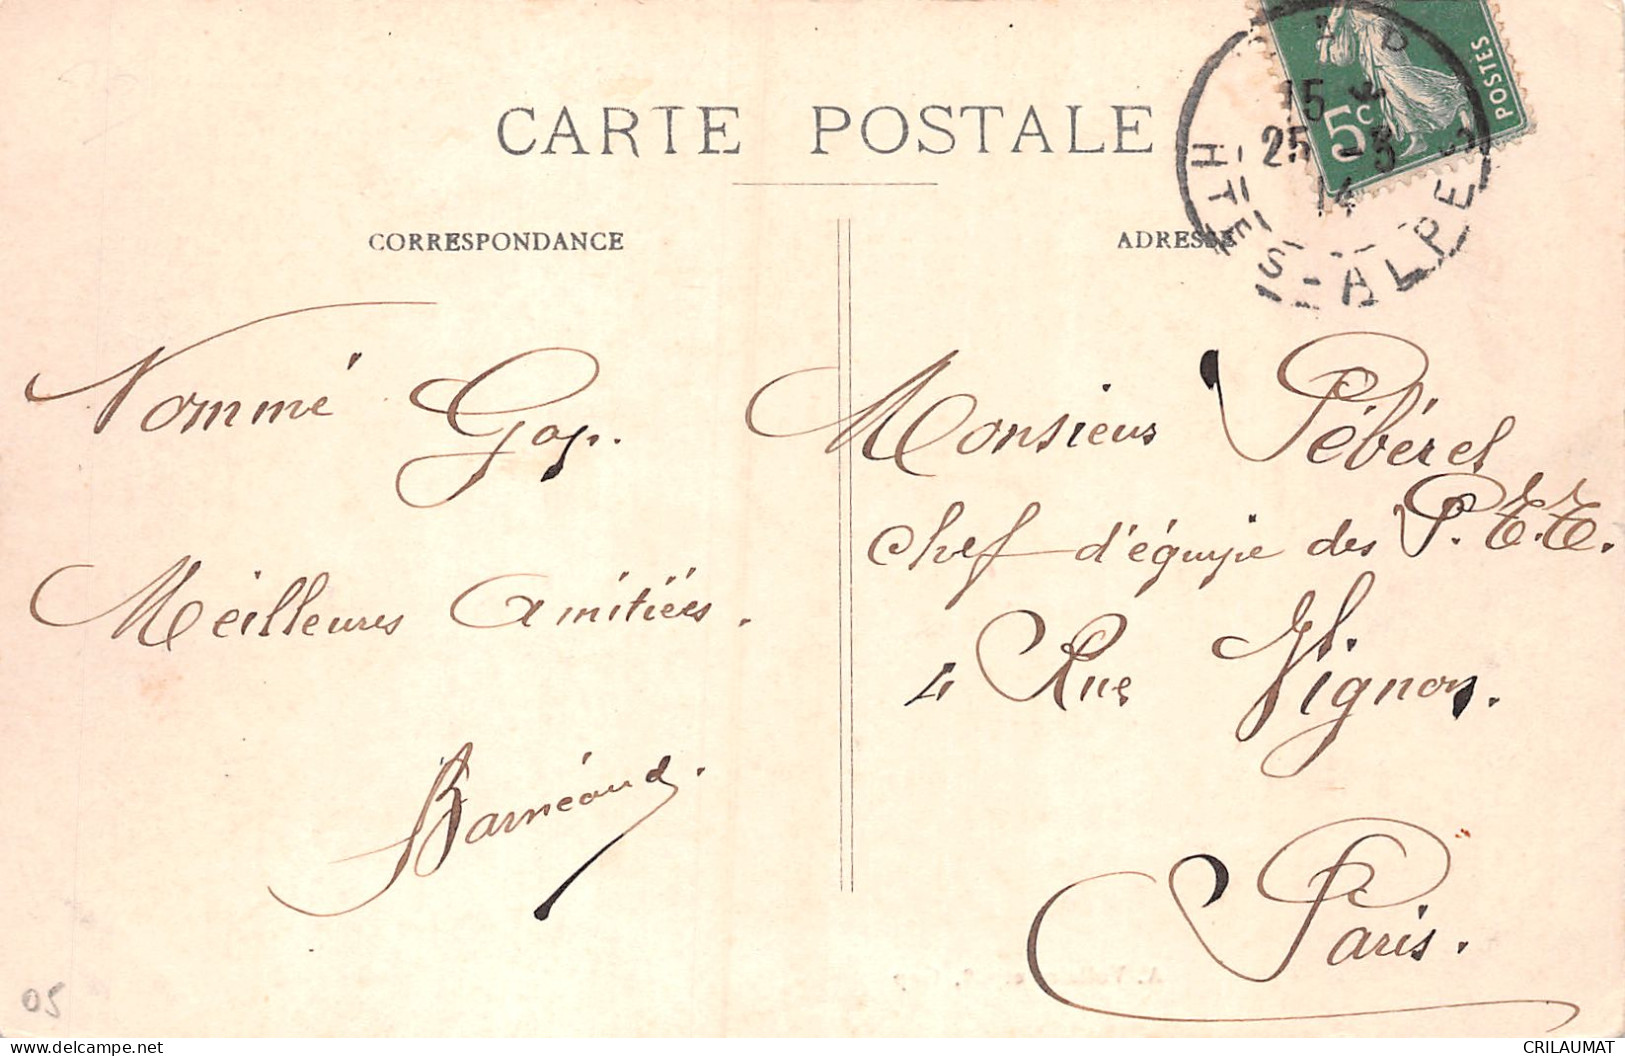 CARTE POSTALE
CORRESPONDANCE
ADRESSE
POSTES
5c
15
25 -3
14
HTES-ALPES
Nommé Gap.
Meilleures Amitiées.
Barnéoud.
Monsieur Pébérel
Chef d'équipe des P.T.T.
4 Rue Vignon.
Paris.
05
CRILAUMAT